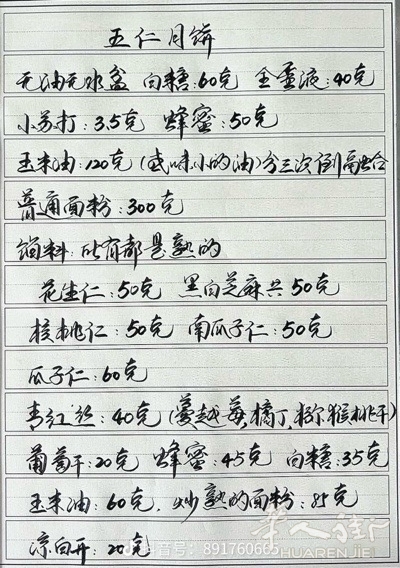 五仁月饼
无油无水盆 白糖:60克 全蛋液:40克
小苏打:3.5克 蜂蜜:50克
玉米油:120克(或味小的油)分三次倒融合
普通面粉:300克
馅料:所有都是熟的
花生仁:50克 黑白芝麻共50克
核桃仁:50克 南瓜子仁:50克
瓜子仁:60克
青红丝:40克(蔓越莓、橘丁、猕猴桃干)
葡萄干:20克 蜂蜜:45克 白糖:35克
玉米油:60克, 炒熟的面粉:85克
凉白开:20克
音号:891760665
华人街
HUARENJIE